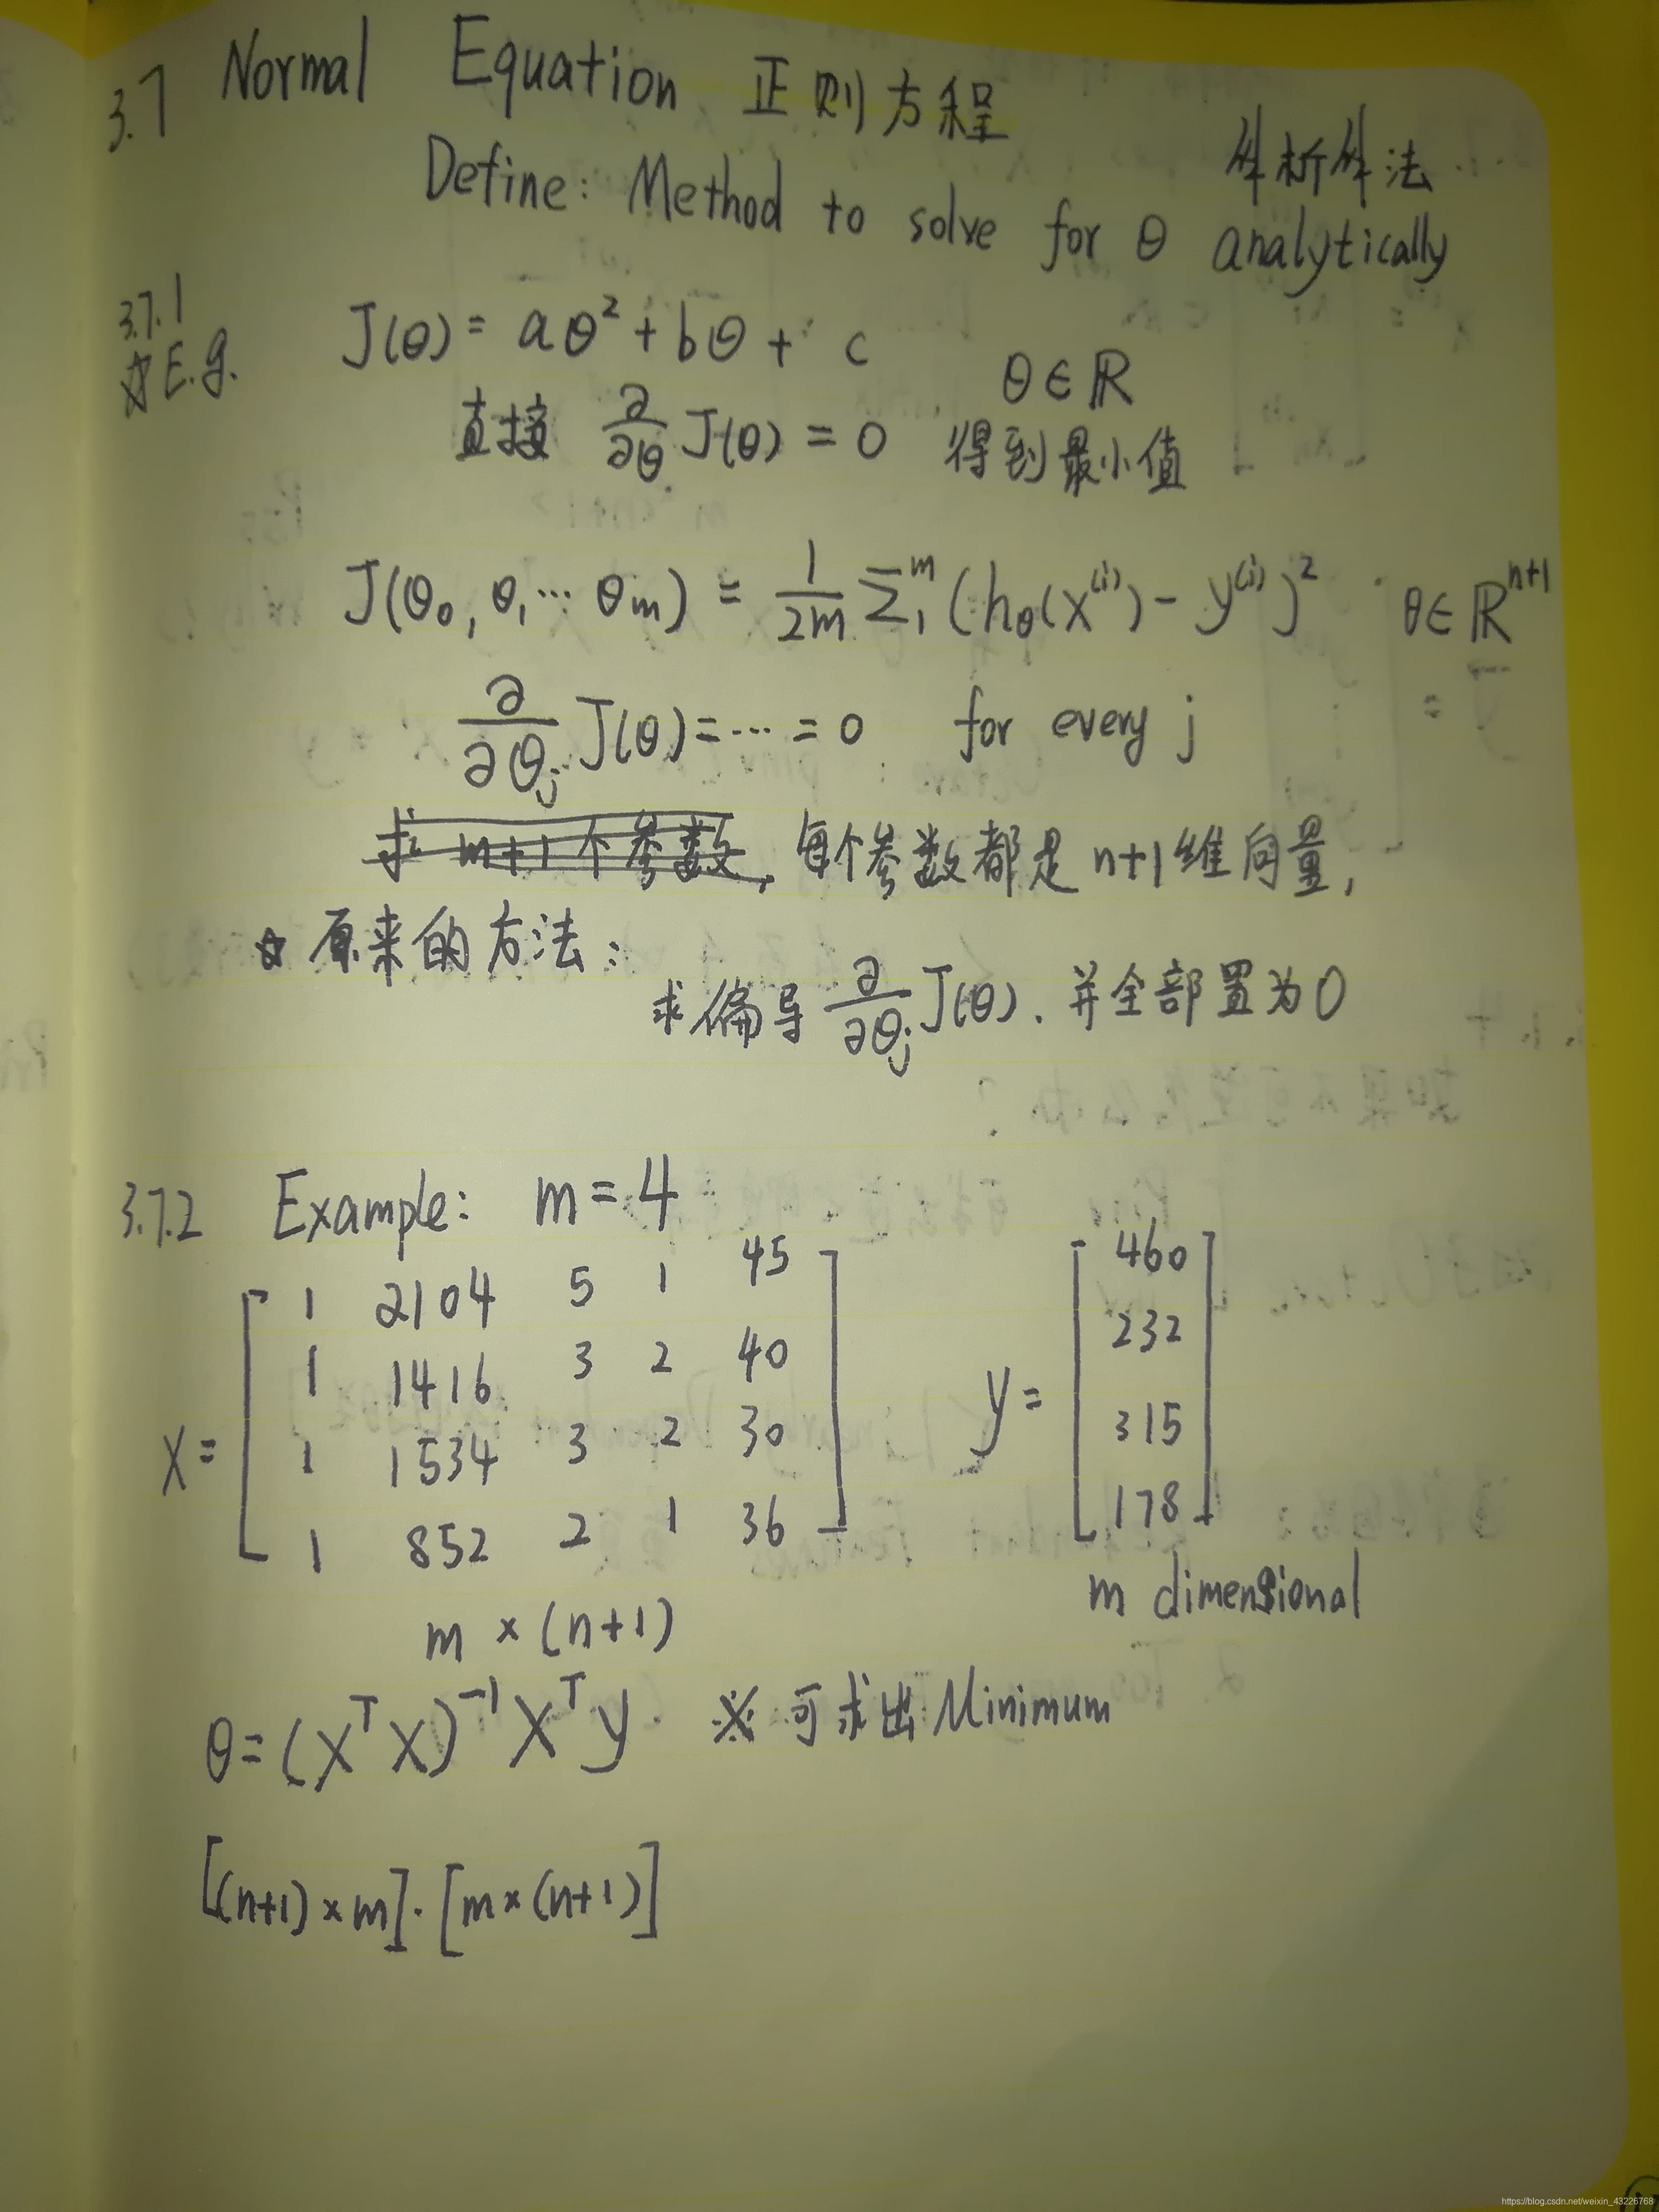 3.7 Normal Equation 正则方程
解析解法
Define: Method to solve for θ analytically
3.7.1
☆E.g. J(θ) = aθ² + bθ + c θ∈ℝ
直接 ∂/∂θ J(θ) = 0 得到最小值
J(θ₀, θ₁ ⋯ θm) = 1/2m Σ₁ᵐ (hθ(x⁽ⁱ⁾) - y⁽ⁱ⁾)² θ∈ℝⁿ⁺¹
∂/∂θj J(θ) = ⋯ = 0 for every j
求 m+1 个参数, 每个参数都是 n+1 维向量,
☆ 原来的方法:
求偏导 ∂/∂θj J(θ). 并全部置为0
3.7.2 Example: m = 4
X = [ 1 2104 5 1 45 y = [ 460
1 1416 3 2 40 232
1 1534 3 2 30 315
1 852 2 1 36 ] 178 ]
m × (n+1) m dimensional
θ = (XᵀX)⁻¹Xᵀy ※ 可求出 Minimum
[(n+1) × m] · [m × (n+1)]
https://blog.csdn.net/weixin_43226768